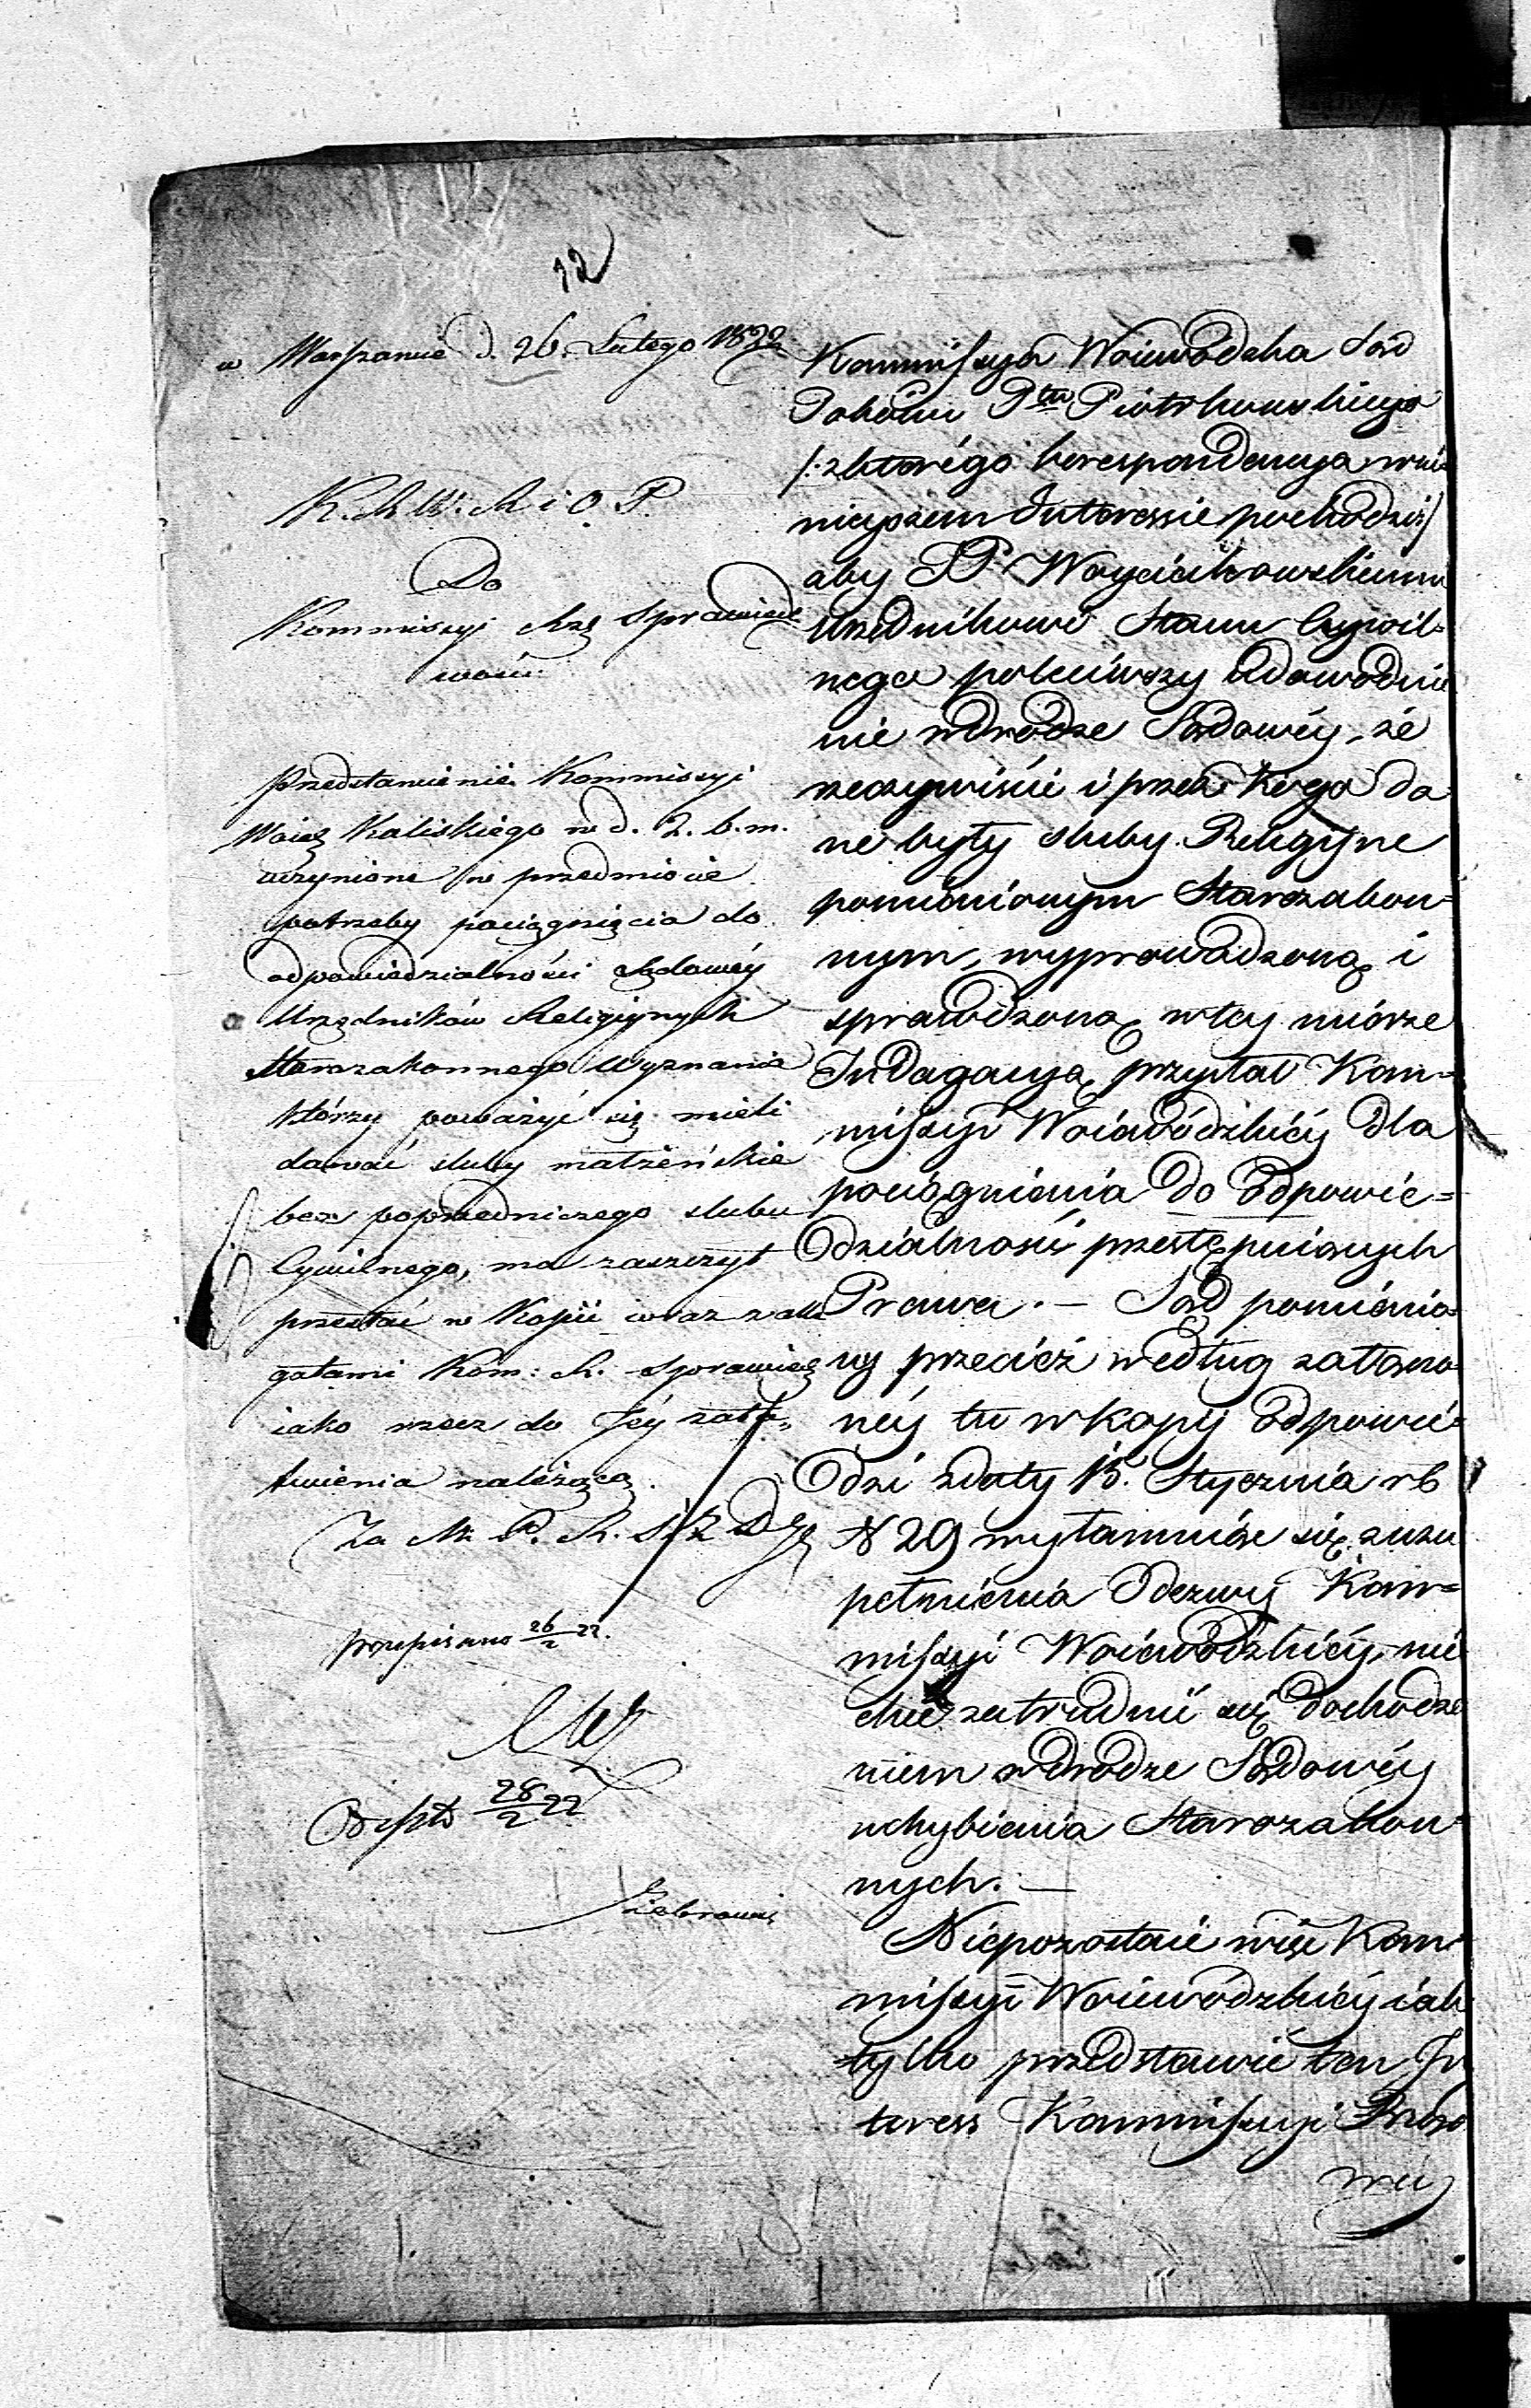 12
w Warszawie d. 26. Lutego 1822
K. R. W. R. i O. P.
Do
Kommissyi Rzą Sprawiedli
wości
Przedstawienie Kommissyi
Woiew Kaliskiego w d. 2. b. m.
uczynione w przedmiocie
potrzeby pociągnięcia do
odpowiedzialności Sądowéy
Urzędników Religiynych
Starozakonnego Wyznania
którzy poważyć się mieli
dawać śluby małżeńskie
bez poprzedniczego ślubu
Cywilnego, ma zaszczyt
przesłać w Kopii wraz z alle
gatami Kom: R. Sprawied
iako rzecz do Jéy zała„
twienia należącą.
Za M. P. R.
przepisano 26/2 22.
28/2 22
Kommissya Woiewódzka Sąd
Pokoiu Ptu Piotrkowskiego
/: z którégo korespondencya wni„
nieyszem Interessie pochodzi :/
aby JP. Woyciechowskiemu
Urzędnikowi Stanu Cywil„
nego poleciwszy udowodnie
nie w drodze Sądowéy, że
rzeczywiście i przez kogo da
ne były śluby Religiyne
pomienionym Starozakon=
nym, wyprowadzoną i
sprawdzoną w tey mierze
Indagacyą przysłał Kom=
missyi Woiewódzkiéy dla
pociągnienia do odpowie=
dzialności przestępnionych
Prawa. — Sąd pomienio
ny przecież według załączo
néy tu w kopij odpowie=
dzi z daty 15. Stycznia r b
N 29 wyłamuiąc się z uzu
pełnienia Odezwy Kom=
missyi Woiewódzkiéy, nie
chce zatrudnić się dochodze
niem w drodze Sądowéy
uchybienia Starozakon=
nych. —
Niepozostaie więc Kom
missyi Woiewódzkiéy iak
tylko przedstawić ten In
teress Kommissyi Rządo
wéy